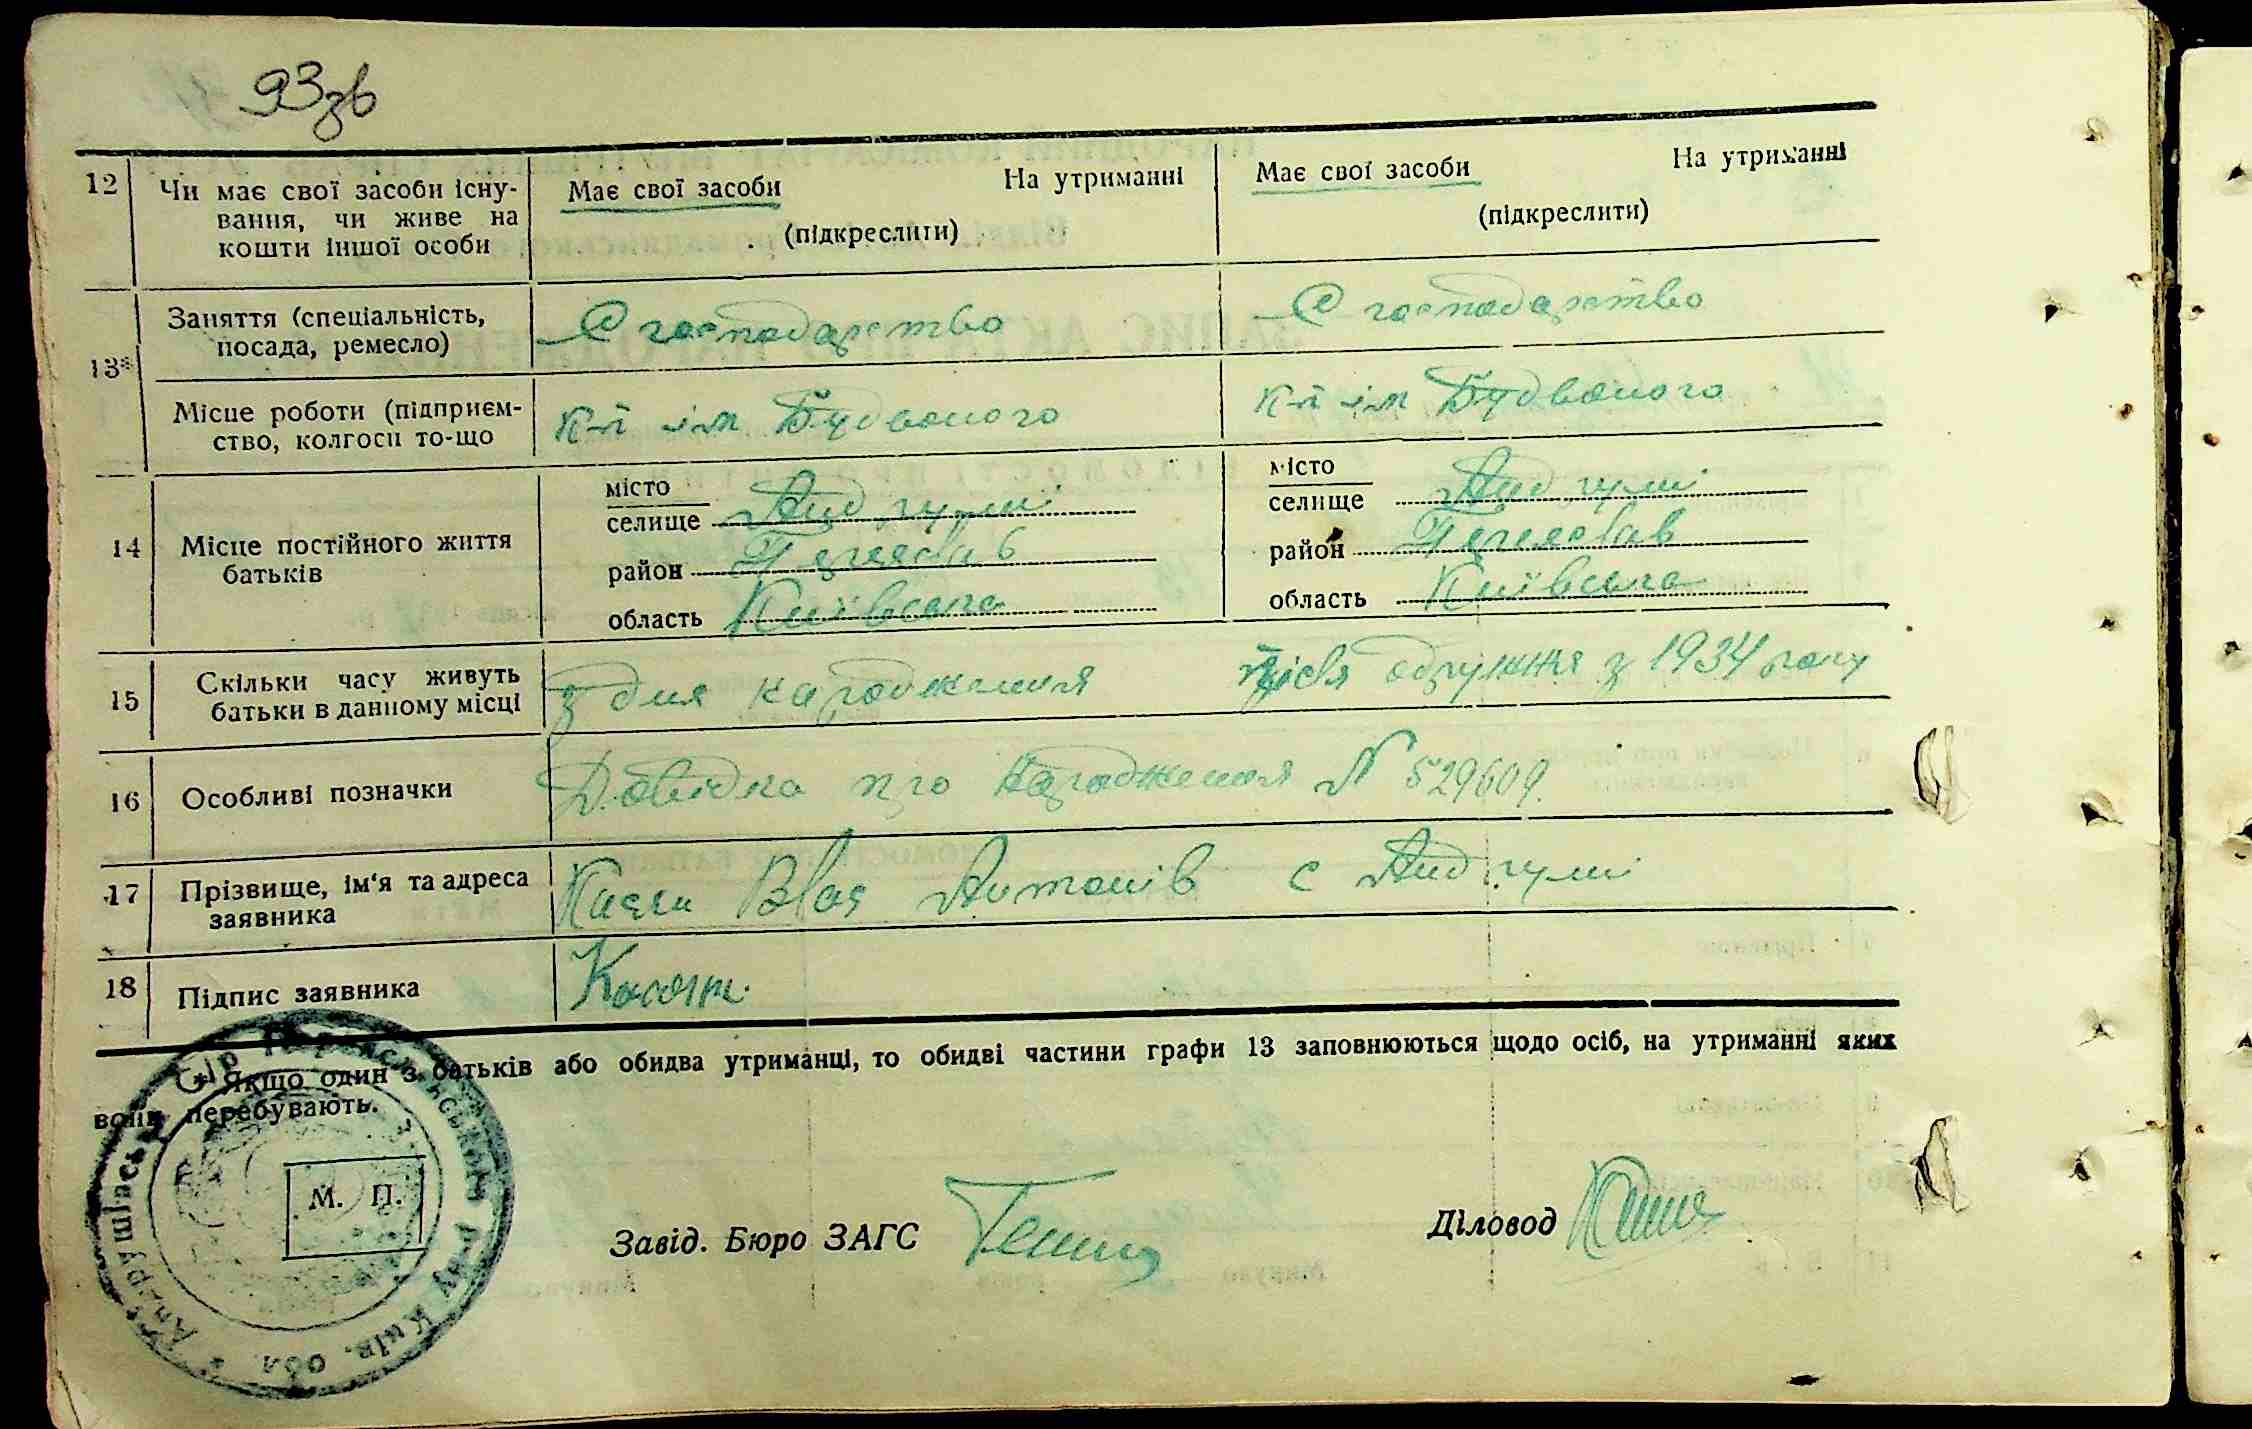 93зв
12 Чи має свої засоби існу-
вання, чи живе на
кошти іншої особи
Має свої засоби На утриманні
(підкреслити)
Має свої засоби На утриманні
(підкреслити)
13* Заняття (спеціальність,
посада, ремесло)
С господарство
С господарство
Місце роботи (підприєм-
ство, колгосп то-що
К-п ім Будьоного
К-п ім Будьоного
14 Місце постійного життя
батьків
місто
селище Андруші
район Переяслав
область Київська
місто
селище Андруші
район Переяслав
область Київська
15 Скільки часу живуть
батьки в данному місці
з дня народження
після одруження з 1934 року
16 Особливі позначки
Довідка про народження № 529609.
17 Прізвище, ім‘я та адреса
заявника
Влас Антонів с Андруші
18 Підпис заявника
* Якщо один з батьків або обидва утриманці, то обидві частини графи 13 заповнюються щодо осіб, на утриманні яких
вони перебувають.
М. П.
Андрушівськ с/р Переяславського р-ну Київ. обл.
Завід. Бюро ЗАГС
Діловод